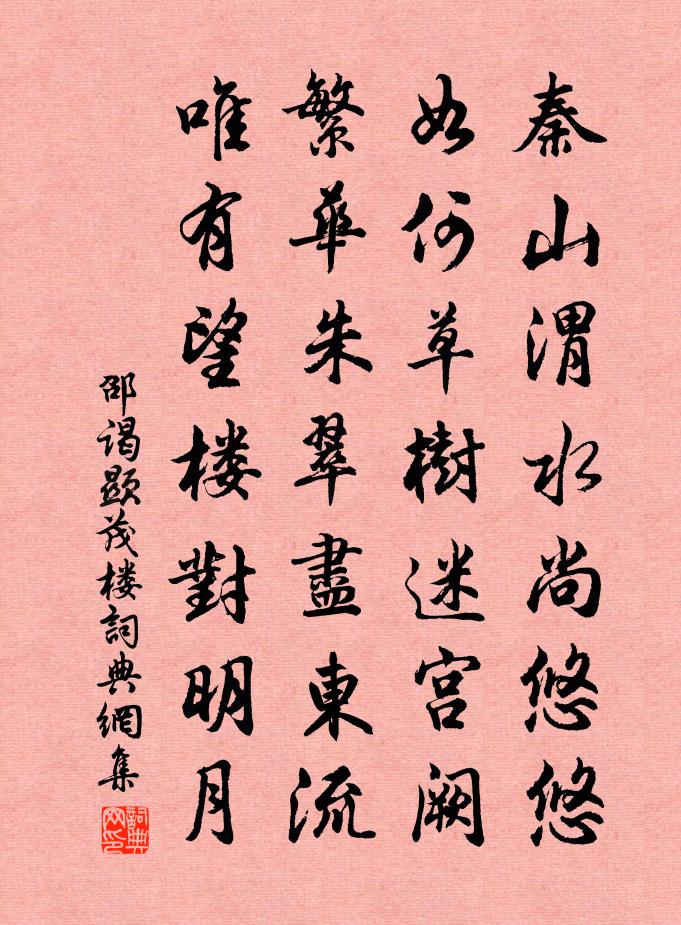 秦山渭水尚悠悠
如何草樹迷宫闕
繁華朱翠盡東流
唯有望楼對明月
邵谒顯茂楼詞典網集
詞典网印